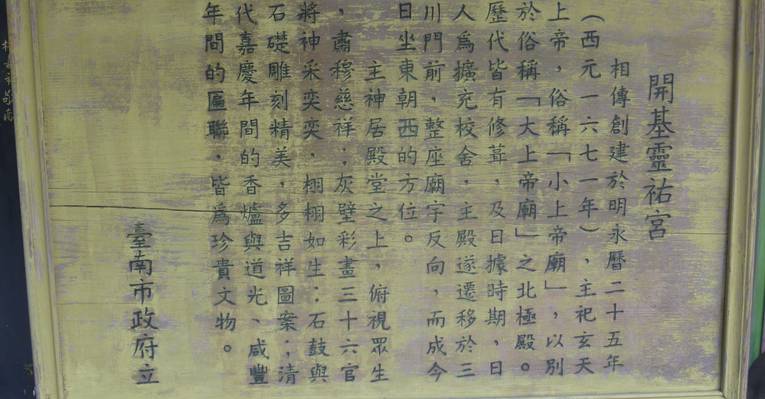 開基靈祐宮
相傳創建於明永曆二十五年
（西元一六七一年），主祀玄天
上帝，俗稱「小上帝廟」，以別
於俗稱「大上帝廟」之北極殿。
歷代皆有修葺，及日據時期，日
人為擴充校舍，主殿遂遷移於三
川門前，整座廟宇反向，而成今
日坐東朝西的方位。
主神居殿堂之上，俯視眾生
，肅穆慈祥；灰壁彩畫三十六官
將神采奕奕，栩栩如生；石鼓與
石礎雕刻精美，多吉祥圖案；清
代嘉慶年間的香爐與道光、咸豐
年間的匾聯，皆為珍貴文物。
臺南市政府立